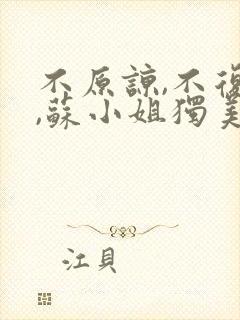 不原諒,不復
,蘇小姐獨美
江貝